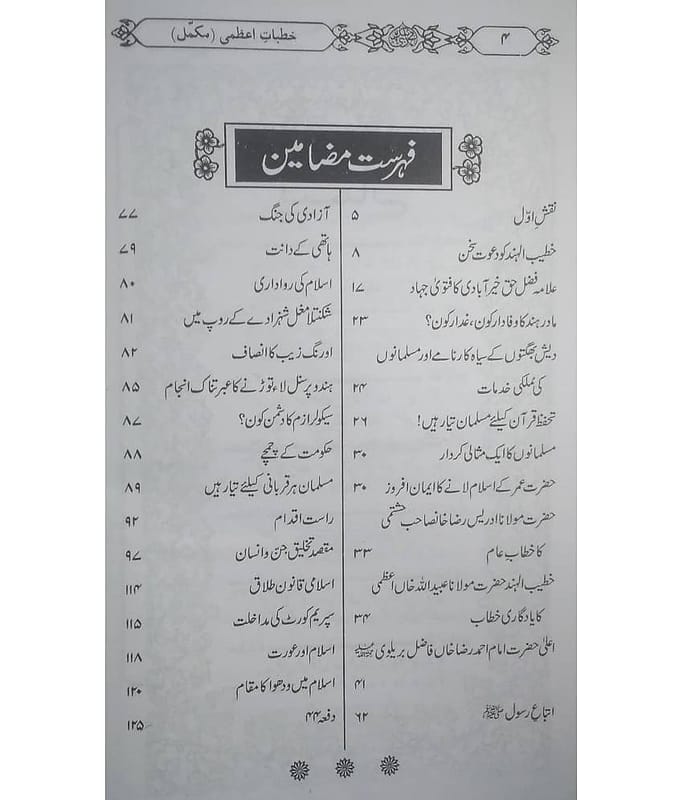 ۴
خطباتِ اعظمی (مکمّل)
فہرست مضامین
نقشِ اوّل ۵
خطیب الہند کو دعوت سخن ۸
علامہ فضل حق خیر آبادی کا فتویٰ جہاد ۱۷
مادر ہند کا وفادار کون، غدار کون؟ ۲۳
دیش بھگتوں کے سیاہ کارنامے اور مسلمانوں
کی مُلکی خدمات ۲۴
تحفظ قرآن کیلئے مسلمان تیار ہیں! ۲۶
مسلمانوں کا ایک مثالی کردار ۳۰
حضرت عمر کے اسلام لانے کا ایمان افروز ۳۰
حضرت مولانا ادریس رضا خانصاحب حشمتی
کا خطابِ عام ۳۳
خطیب الہند حضرت مولانا عبید اللہ خاں اعظمی
کا یادگاری خطاب ۳۴
اعلیٰ حضرت امام احمد رضا خاں فاضل بریلوی
۴۱
اتباع رسول ﷺ ۶۲
آزادی کی جنگ ۷۷
ہاتھی کے دانت ۷۹
اسلام کی رواداری ۸۰
شکنتلا مغل شہزادے کے روپ میں ۸۱
اورنگ زیب کا انصاف ۸۲
ہندو پرسنل لاء توڑنے کا عبرتناک انجام ۸۵
سیکولرازم کا دشمن کون؟ ۸۷
حکومت کے چمچے ۸۸
مسلمان ہر قربانی کیلئے تیار ہیں ۸۹
راست اقدام ۹۲
مقصد تخلیق جن و انسان ۹۷
اسلامی قانون طلاق ۱۱۴
سپریم کورٹ کی مداخلت ۱۱۵
اسلام اور عورت ۱۱۸
اسلام میں ودھوا کا مقام ۱۲۰
دفعہ ۴۴ ۱۲۵